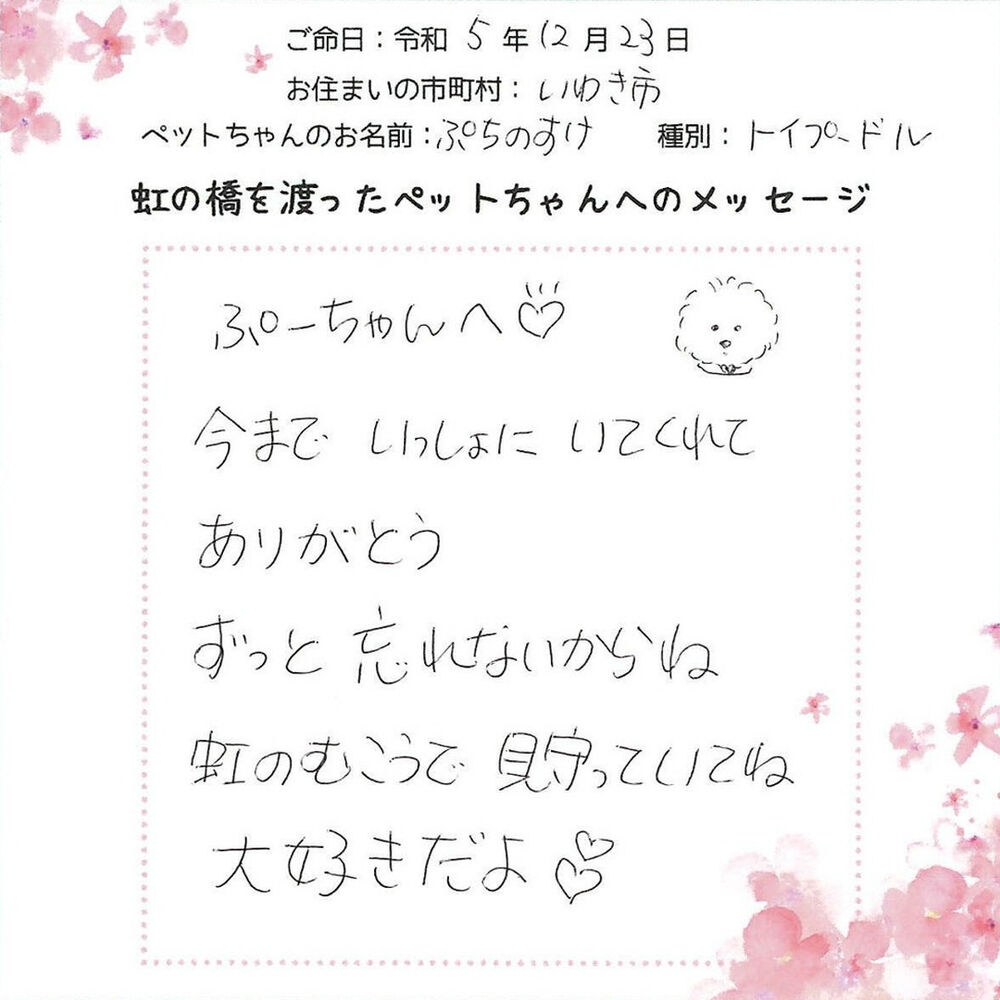 ご命日：令和 5 年 12 月 23 日
お住まいの市町村： いわき市
ペットちゃんのお名前：ぷちのすけ 種別： トイプードル
虹の橋を渡ったペットちゃんへのメッセージ
ぷーちゃんへ♡
今まで いっしょに いてくれて
ありがとう
ずっと 忘れないからね
虹のむこうで 見守っていてね
大好きだよ♡♡